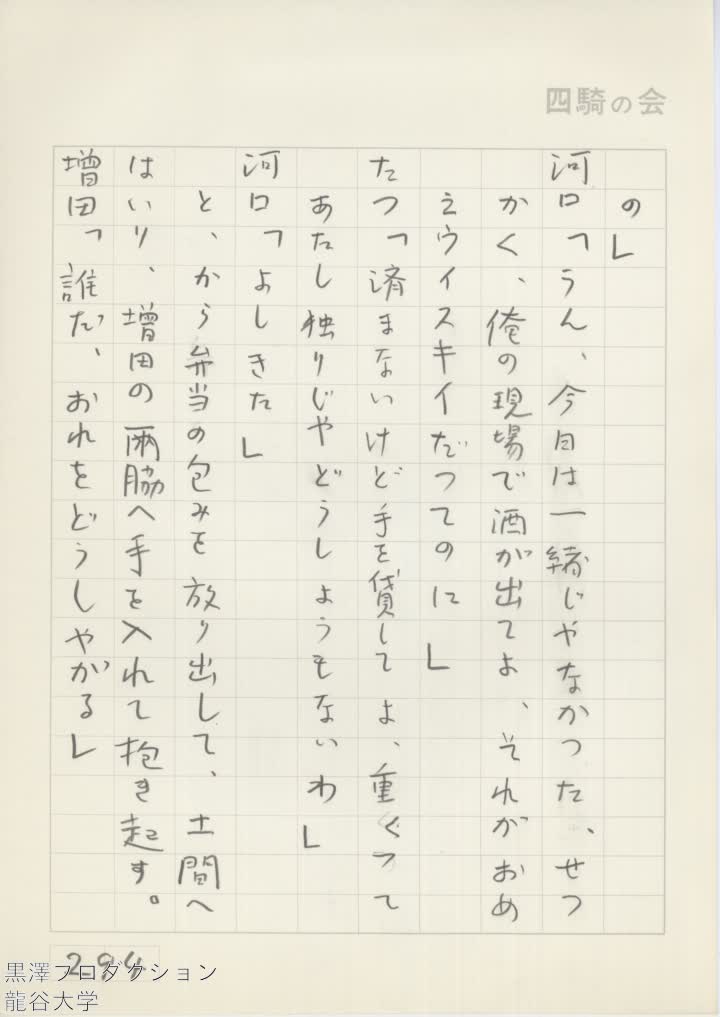 四騎の会
の」
河口「うん、今日は一緒じやなかつた、せつ
かく、俺の現場で酒が出てよ、それがおめ
えウイスキイだつてのに」
たつ「済まないけど手を貸してよ、重くつて
あたし独りじやどうしようもないわ」
河口「よしきた」
と、から弁当の包みを放り出して、土間へ
はいり、増田の両脇へ手を入れて抱き起す。
増田「誰だ、おれをどうしやがる」
294
黒澤プロダクション
龍谷大学